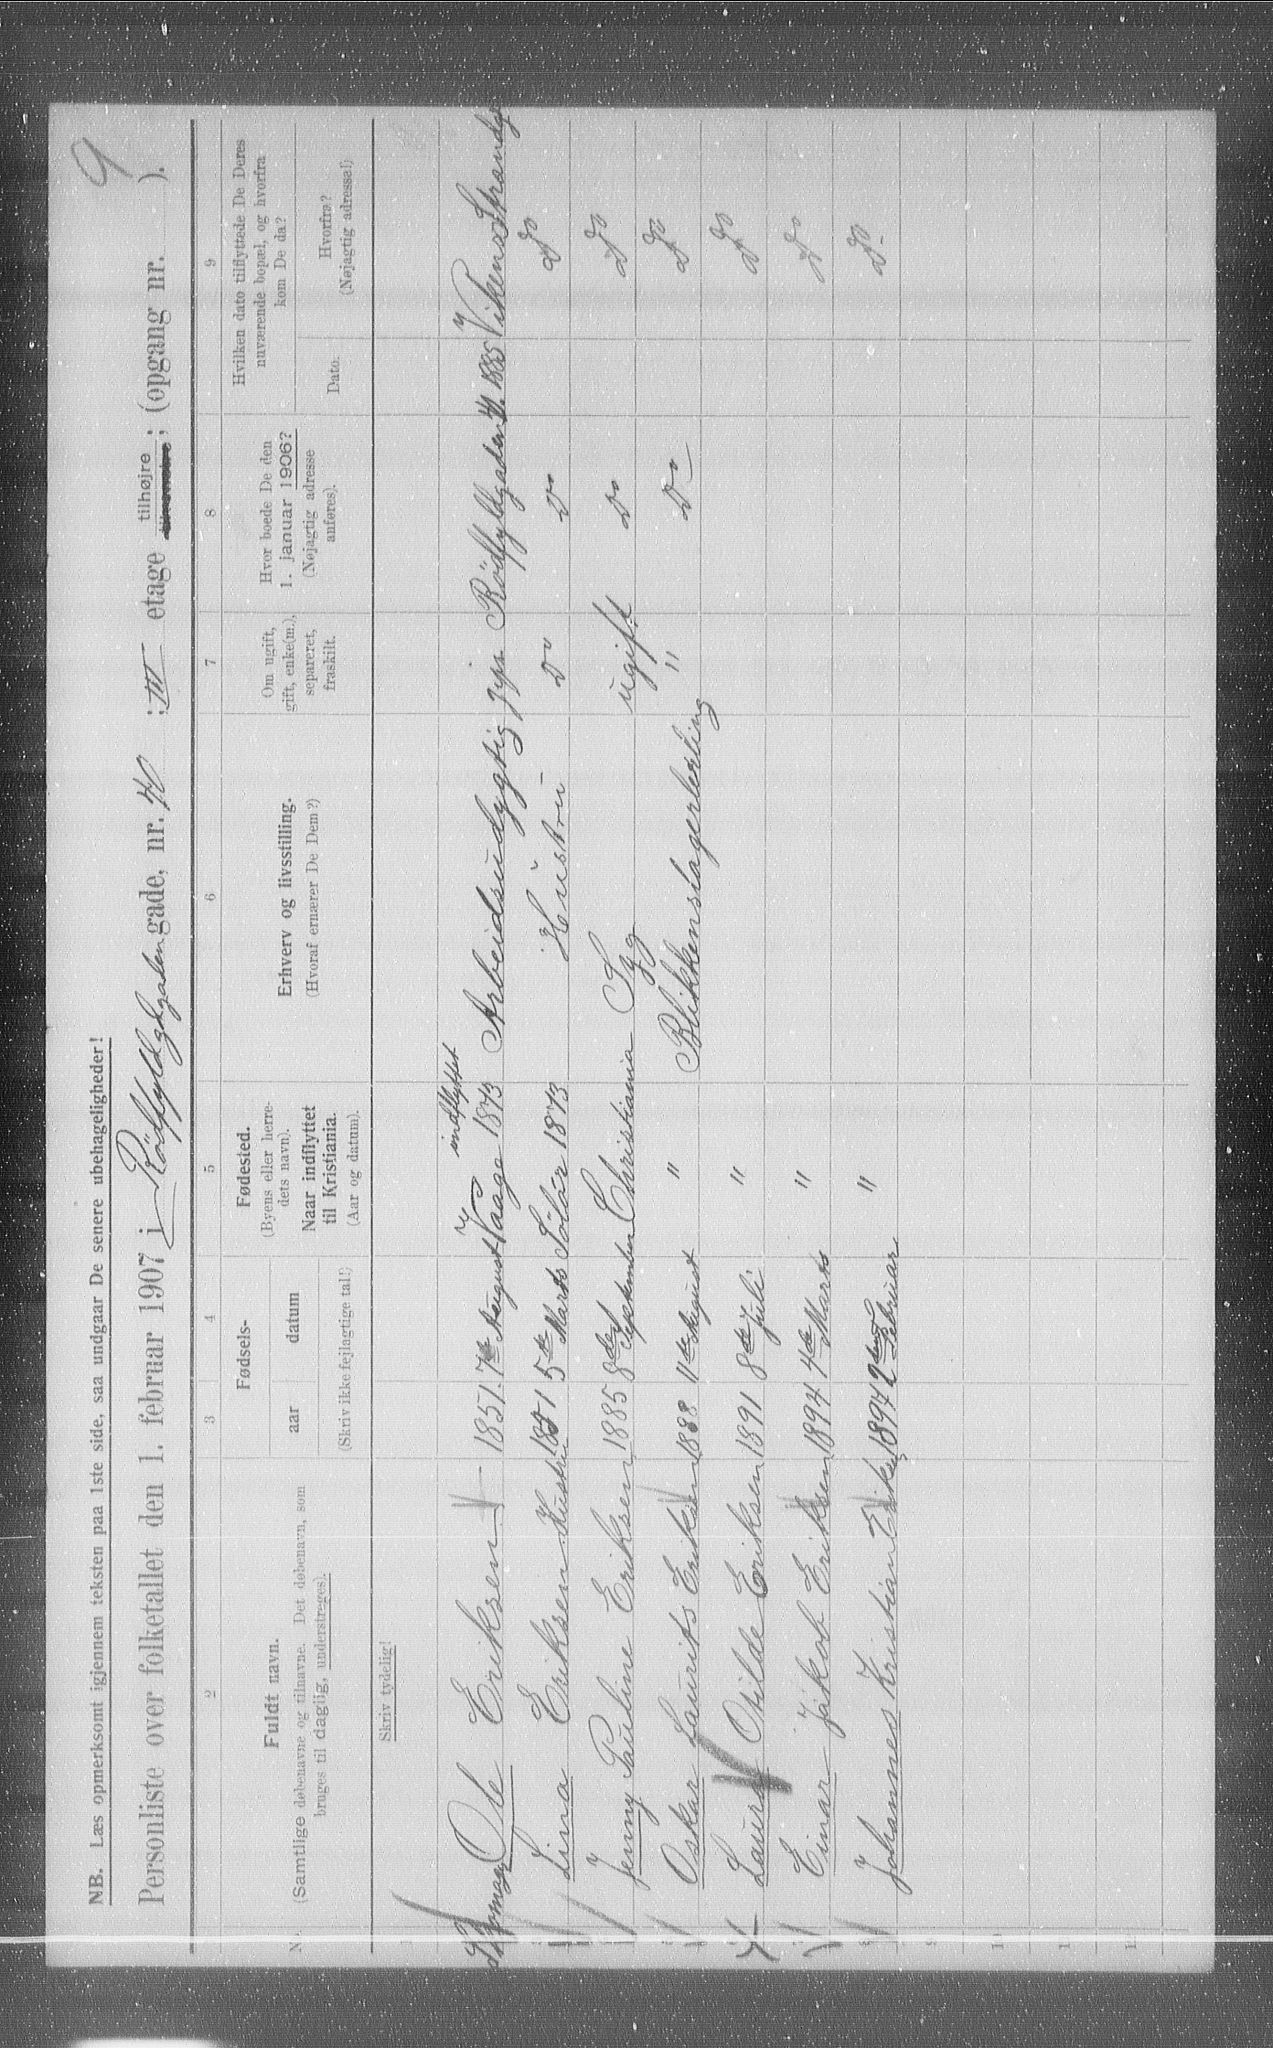 9
NB. Læs opmerksomt igjennem teksten paa 1ste side, saa undgaar De senere ubehageligheder!
Personliste over folketallet den 1. februar 1907 i Rödfyldgaden gade, nr. 40 ; III etage tilhøjre tilvenstre ; (opgang nr. ).
2 3 4 5 6 7 8 9
Fuldt navn.
(Samtlige døbenavne og tilnavne. Det døbenavn, som
bruges til daglig, understreges).
Fødsels-
aar datum
(Skriv ikke fejlagtige tal!)
Fødested.
(Byens eller herre-
dets navn).
Naar indflyttet
til Kristiania.
(Aar og datum).
Erhverv og livsstilling.
(Hvoraf ernærer De Dem?)
Om ugift,
gift, enke(m.),
separeret,
fraskilt.
Hvor boede De den
1. januar 1906?
(Nøjagtig adresse
anføres).
Hvilken dato tilflyttede De Deres
nuværende bopæl, og hvorfra
kom De da?
Dato.
Hvorfra?
(Nøjagtig adresse!)
Skriv tydelig!
indflyttet
Ole Eriksen 1851 7de August Vaage 1873 Arbeidsudygtig Rödfyldgaden 1885
Lina Eriksen Hustru 1851 5te Marts Solør 1873 Hustru Do Do Do
Jenny Pauline Eriksen 1885 8de September Christiania Syg ugift Do Do
Oskar Laurits Eriksen 1888 11te August " Blikkenslagerlerling " Do Do
Laura Otilde Eriksen 1891 8de Juli " Do
Einar Jakob Eriksen 1894 4de Marts " Do
Johannes Kristian Eriksen 1897 2den Februar " Do
9
10
11
12